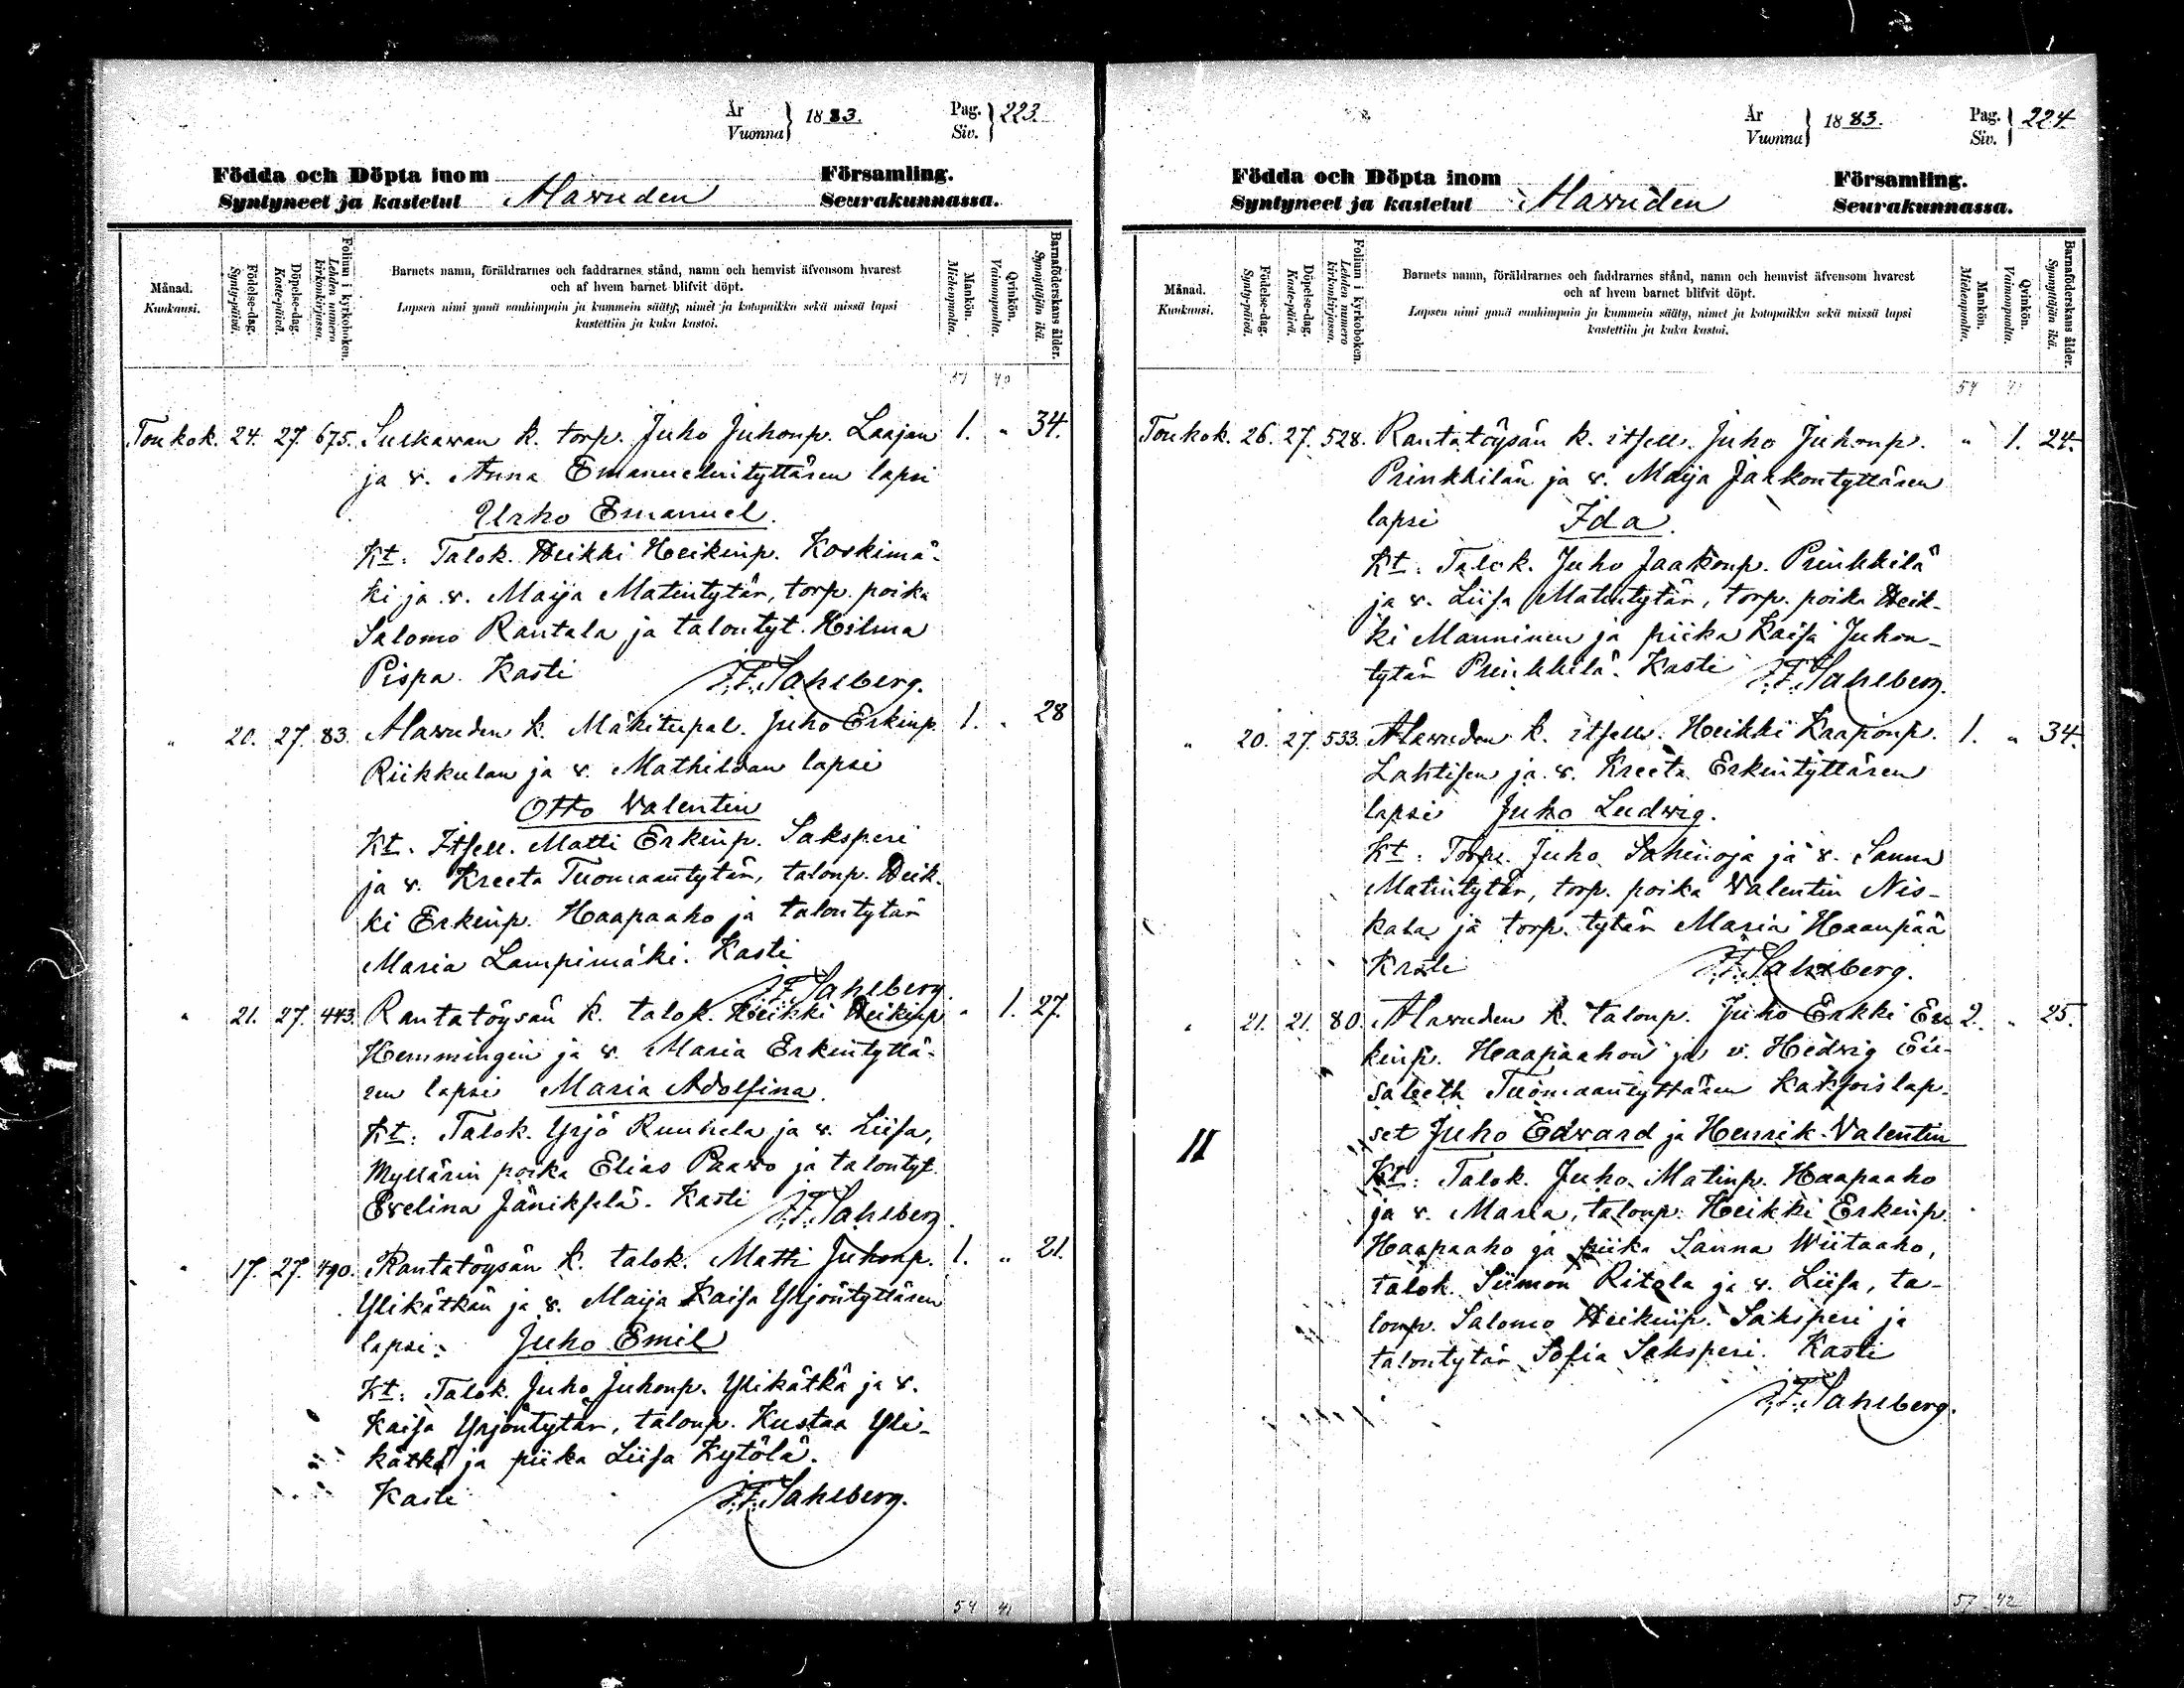 År 1883. Pag. 223.
Vuonna Siv.
Födda och Döpta inom Församling.
Syntyneet ja kastetut Alavuden Seurakunnassa.
Månad.
Kuukausi.
Födelse-dag.
Synty-päivä.
Döpelse-dag.
Kaste-päivä.
Folium i kyrkoboken.
Lehden numero kirkonkirjassa.
Barnets namn, föräldrarnes och faddrarnes stånd, namn och hemvist äfvensom hvarest
och af hvem barnet blifvit döpt.
Lapsen nimi ynnä vanhimpain ja kummein sääty, nimet ja kotopaikka sekä missä lapsi
kastettiin ja kuka kastoi.
Mankön.
Miehenpuolta.
Qvinkön.
Vaimonpuolta.
Barnaföderskans ålder.
Synnyttäjän ikä.
51 40
Toukok. 24. 27. 675. Sulkavan k. torp. Juho Juhonp. Laajan 1. " 34.
ja v. Anna Emanuelintyttären lapsi
Urho Emanuel.
Kt: Talok. Heikki Heikinp. Koskimä-
ki ja v. Maija Matintytär, torp. poika
Salomo Rantala ja talontyt. Hilma
Pispa. Kasti J.F. Sahlberg.
" 20. 27. 83. Alavuden k. Mäkitupal. Juho Erkinp. 1. " 28
Riikkulan ja v. Mathildan lapsi
Otto Valentin
Kt. Itsell. Matti Erkinp. Saksperi
ja v. Kreeta Tuomaantytär, talonp. Heik-
ki Erkinp. Haapaaho ja talontytär
Maria Lampimäki. Kasti
J.F. Sahlberg.
" 21. 27. 443. Rantatöysän k. talok. Heikki Heikinp " 1. 27.
Hemmingin ja v. Maria Erkintyttä-
ren lapsi Maria Adolfina.
Kt: Talok. Yrjö Ruuhela ja v. Liisa,
Myllärin poika Elias Paavo ja talontyt.
Evelina Jänikselä. Kasti J.F. Sahlberg.
" 17. 27. 490. Rantatöysän k. talok. Matti Juhonp. 1. " 21.
Ylikätkän ja v. Maija Kaisa Yrjöntyttären
lapsi: Juho Emil
Kt: Talok. Juho Juhonp. Ylikätkä ja v.
Kaisa Yrjöntytär, talonp. Kustaa Yli-
kätkä ja piika Liisa Kytölä.
Kasti J.F. Sahlberg.
54 41
År 1883. Pag. 224
Vuonna Siv.
Födda och Döpta inom Församling.
Syntyneet ja kastetut Alavuden Seurakunnassa.
Månad.
Kuukausi.
Födelse-dag.
Synty-päivä.
Döpelse-dag.
Kaste-päivä.
Folium i kyrkoboken.
Lehden numero kirkonkirjassa.
Barnets namn, föräldrarnes och faddrarnes stånd, namn och hemvist äfvensom hvarest
och af hvem barnet blifvit döpt.
Lapsen nimi ynnä vanhimpain ja kummein sääty, nimet ja kotopaikka sekä missä lapsi
kastettiin ja kuka kastoi.
Mankön.
Miehenpuolta.
Qvinkön.
Vaimonpuolta.
Barnaföderskans ålder.
Synnyttäjän ikä.
54 41
Toukok. 26. 27. 528. Rantatöysän k. itsell. Juho Juhonp. " 1. 24.
Prinkkilän ja v. Maija Jaakontyttären
lapsi Ida.
Kt: Talok. Juho Jaakonp. Prinkkilä
ja v. Liisa Matintytär, torp. poika Heik-
ki Manninen ja piika Kaisa Juhon-
tytär Prinkkilä. Kasti J.F. Sahlberg.
" 20. 27. 533. Alavuden k. itsell. Heikki Kaaponp. 1. " 34.
Lahtisen ja v. Kreeta Erkintyttären
lapsi Juho Ludwig.
Kt: Torp. Juho Sahinoja ja v. Sanna
Matintytär, torp. poika Valentin Nis-
kala ja torp. tytär Maria Haanpää
Kasti J.F. Sahlberg.
" 21. 21. 80. Alavuden k. talonp. Juho Erkki Er- 2. " 25.
kinp. Haapaahon ja v. Hedvig Eli-
sabeth Tuomaantyttären kaksoislap-
II set Juho Edvard ja Henrik Valentin
Kt: Talok. Juho Matinp. Haapaaho
ja v. Maria, talonp. Heikki Erkinp.
Haapaaho ja piika Sanna Wiitaaho,
talok. Siimon Ritola ja v. Liisa, ta-
lonp. Salomo Heikinp. Saksperi ja
talontytär Sofia Saksperi. Kasti
J.F. Sahlberg.
57 42